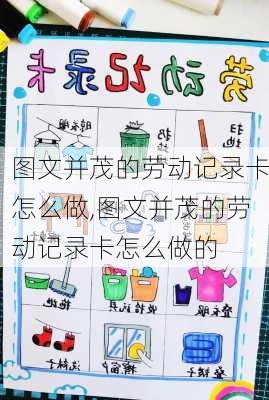 劳动记录卡
扫地
倒垃圾
晾衣服
图文并茂的劳动记录卡
怎么做,图文并茂的劳
动记录卡怎么做的
叠衣服
拖地
叠被子
擦窗户
洗袜子